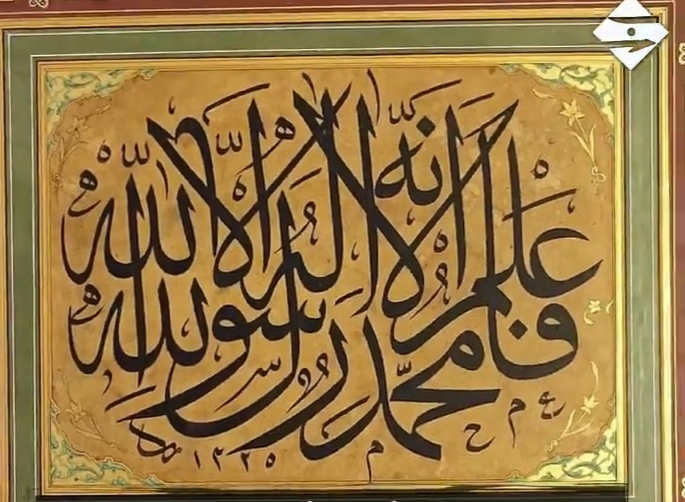 فاعلم انه لا اله الا الله
محمد رسول الله
١٢٢٥